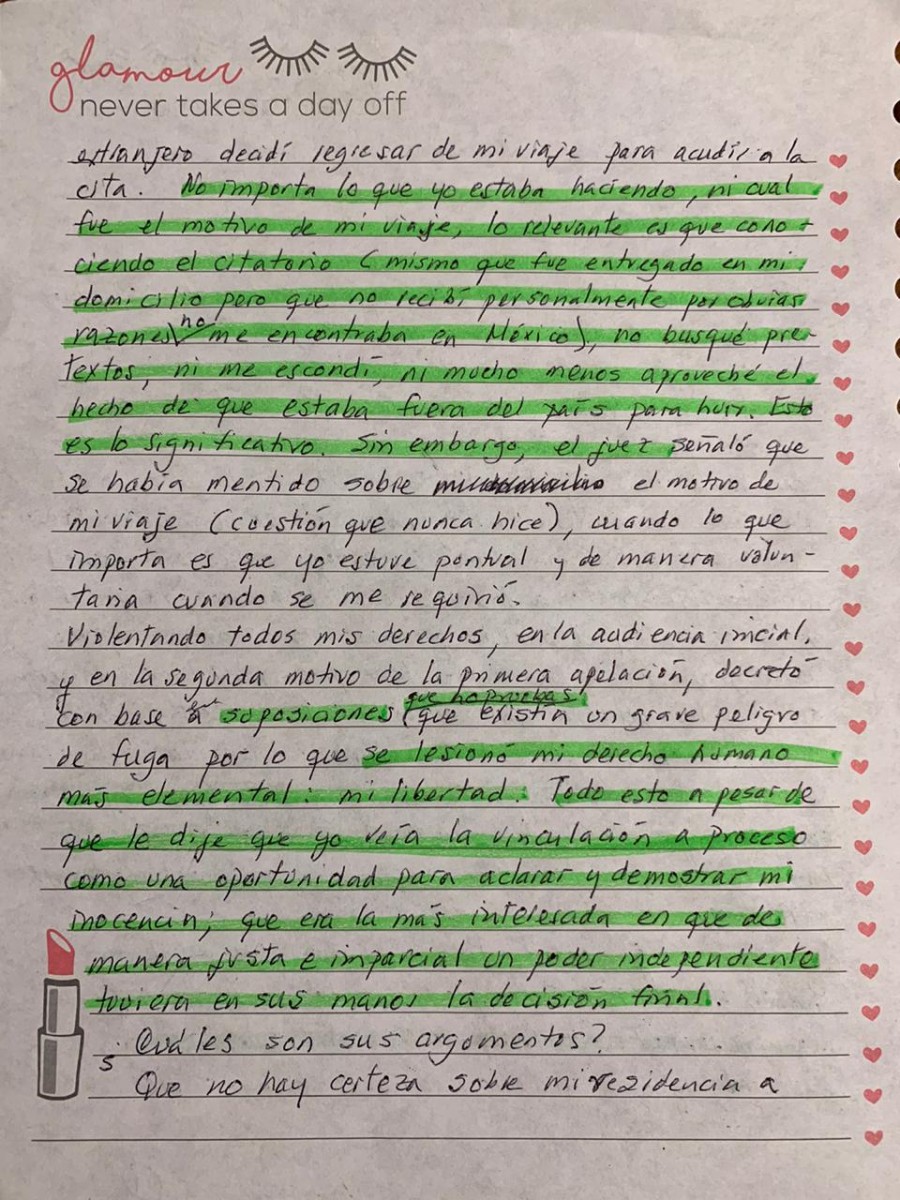 glamour
never takes a day off
extranjero decidí regresar de mi viaje para acudir a la
cita. No importa lo que yo estaba haciendo, ni cual
fue el motivo de mi viaje, lo relevante es que cono-
ciendo el citatorio (mismo que fue entregado en mi
domicilio pero que no recibí personalmente por obvias
razones, no me encontraba en México), no busqué pre-
textos, ni me escondí, ni mucho menos aproveché el
hecho de que estaba fuera del país para huir. Esto
es lo significativo. Sin embargo, el juez señaló que
se había mentido sobre el motivo de
mi viaje (cuestión que nunca hice), cuando lo que
importa es que yo estuve pontual y de manera volun-
taria cuando se me requirió.
Violentando todos mis derechos, en la audiencia inicial,
y en la segunda motivo de la primera apelación, decretó
que no pruebas
con base a suposiciones (que existía un grave peligro
de fuga por lo que se lesionó mi derecho humano
más elemental: mi libertad. Todo esto a pesar de
que le dije que yo vería la vinculación a proceso
como una oportunidad para aclarar y demostrar mi
inocencia; que era la más interesada en que de
manera justa e imparcial un poder independiente
tuviera en sus manos la decisión final.
5. Cuáles son sus argumentos?
Que no hay certeza sobre mi residencia a